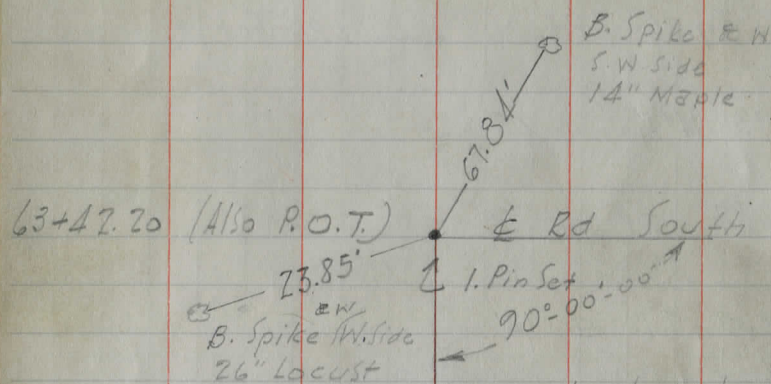 B. Spike & W
S.W Side
14" Maple
67.84'
63+42.20 (Also P.O.T.) ℄ Rd South
23.85'
1. Pin Set
90°-00'-00"
& W
B. Spike W. Side
26" Locust